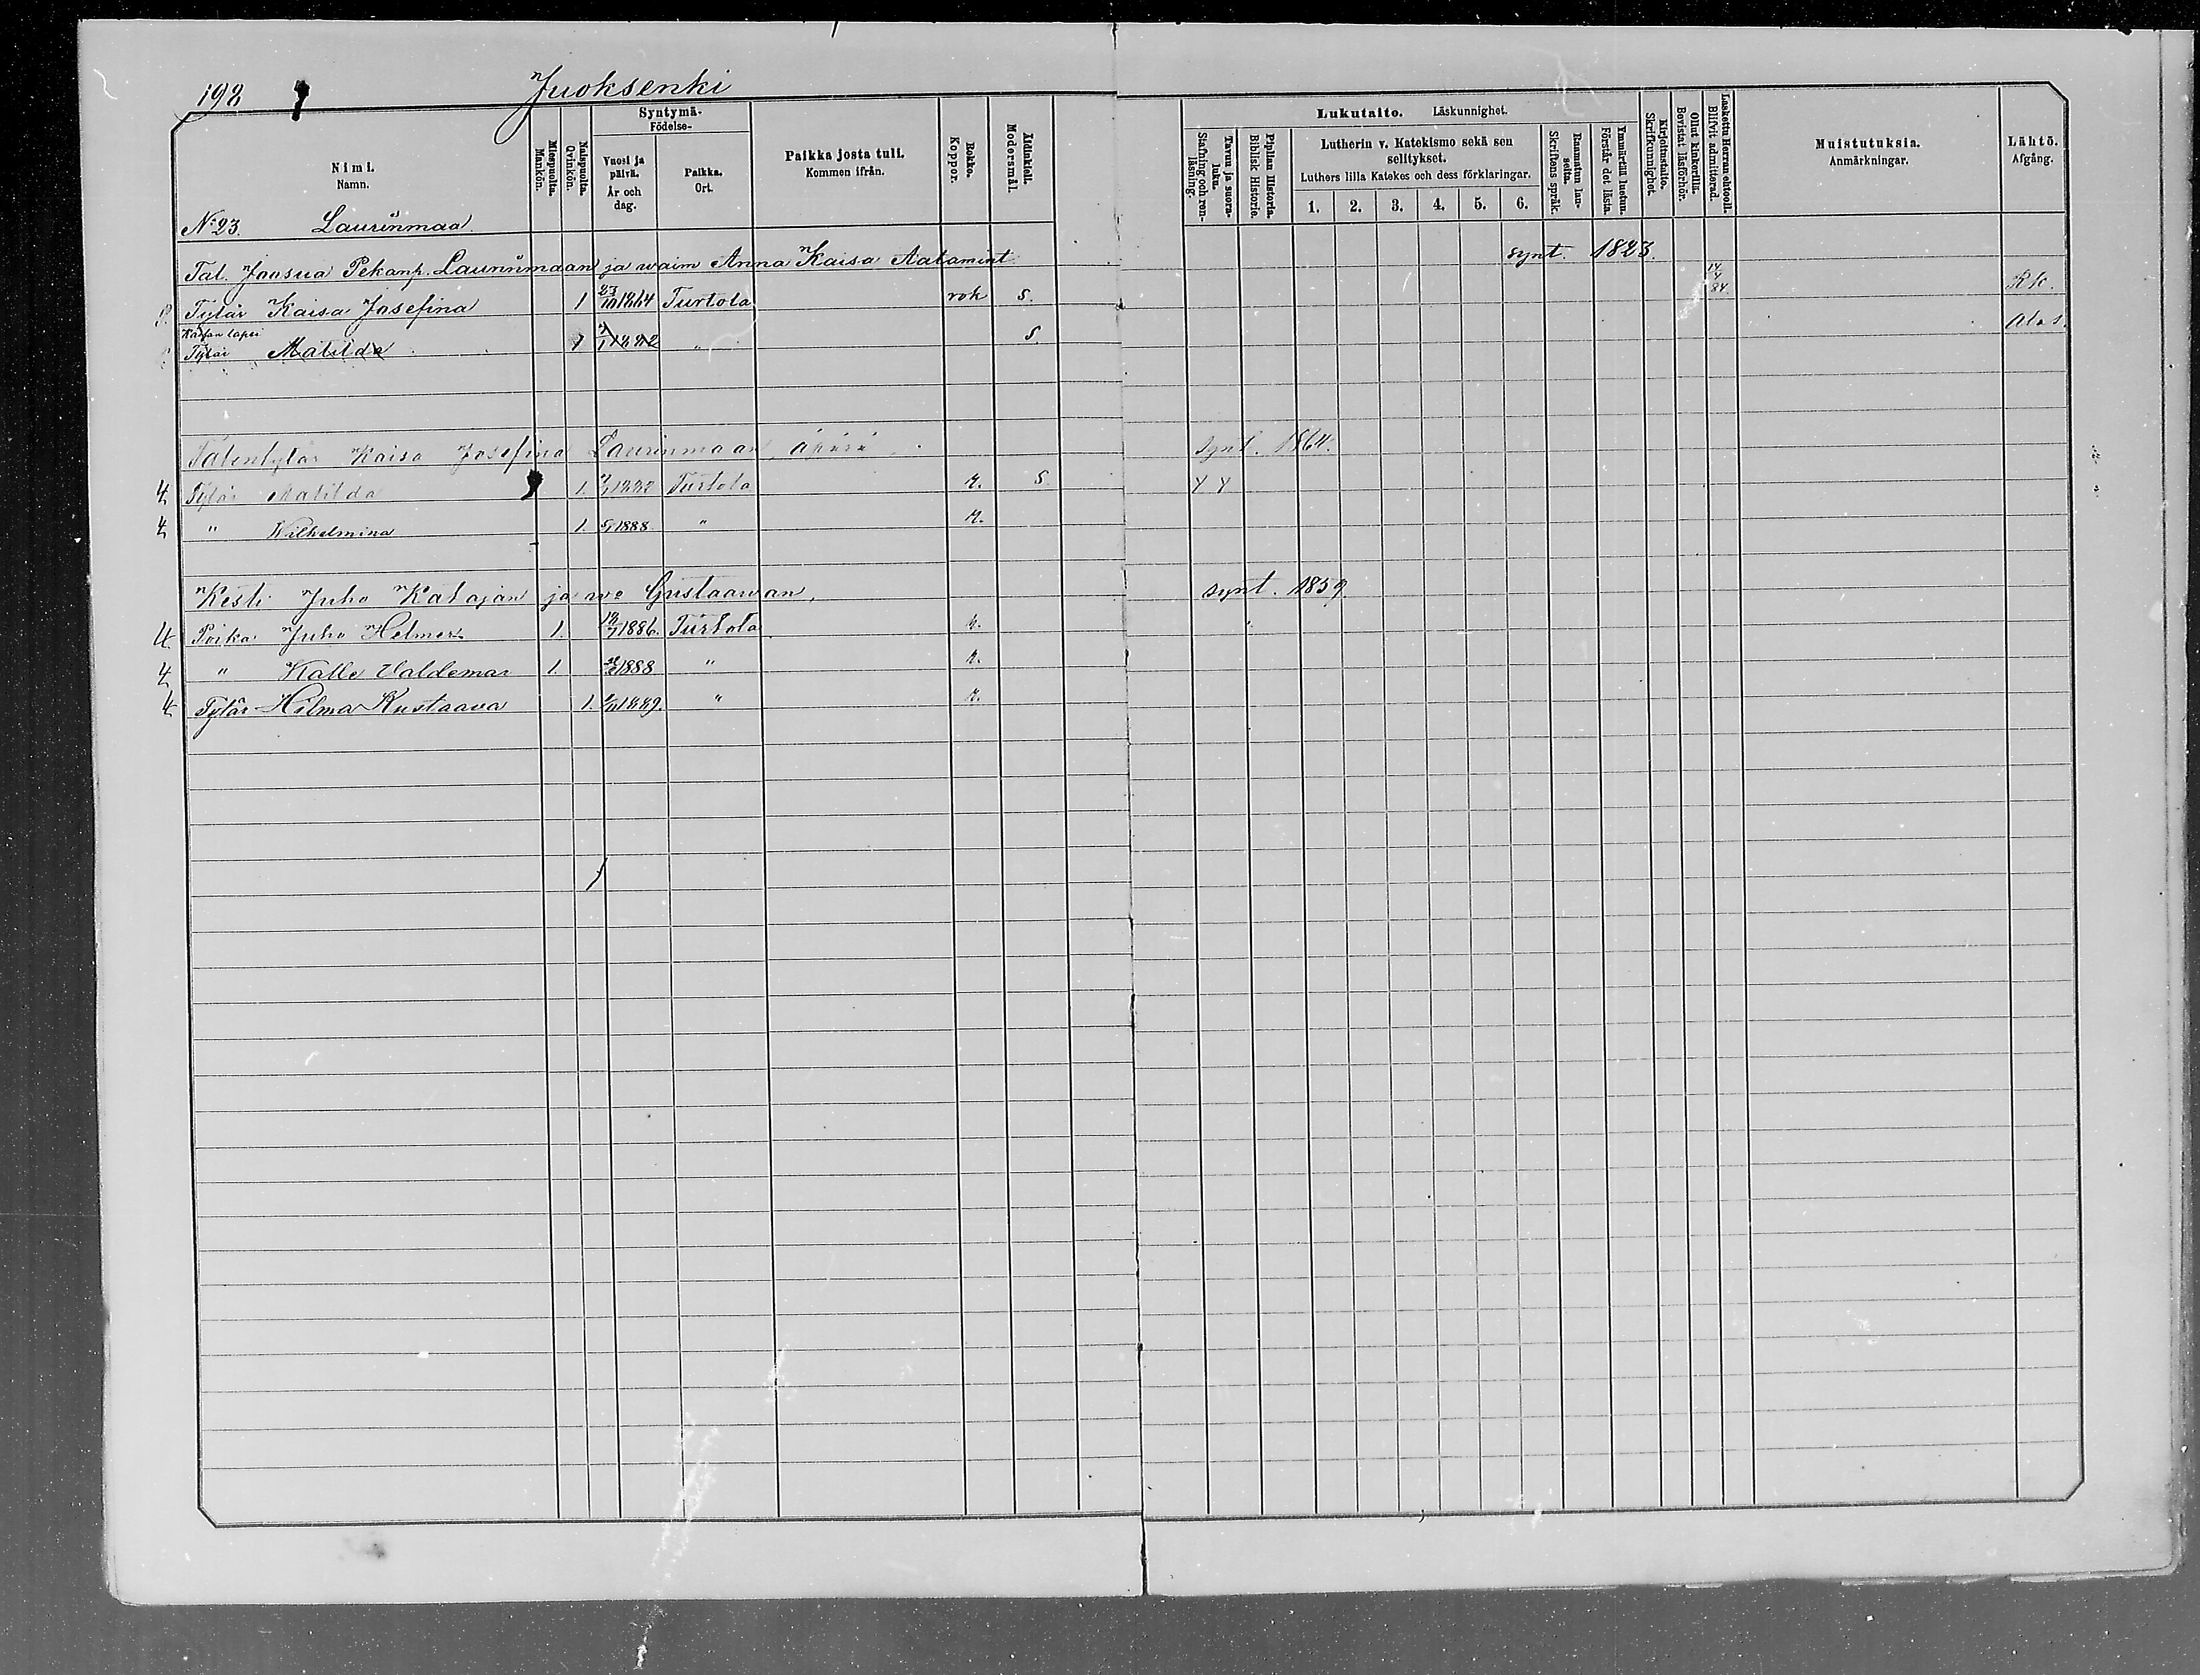 198 Juoksenki
Nimi. Namn.
Miespuolta. Mankön.
Naispuolta. Qvinkön.
Syntymä- Födelse-
Vuosi ja päivä. År och dag.
Paikka. Ort.
Paikka josta tuli. Kommen ifrån.
Rokko. Koppor.
Äidinkieli. Modersmål.
Tavun ja suora-luku. Stafning och ren-läsning.
Piplian Historia. Biblisk Historie.
Lukutaito. Läskunnighet.
Lutherin v. Katekismo sekä sen selitykset.
Luthers lilla Katekes och dess förklaringar.
1. 2. 3. 4. 5. 6.
Raamatun lauseita. Skriftens språk.
Ymmärtää luetun. Förstår det lästa.
Kirjoitustaito. Skrifkunnighet.
Ollut kinkerillä. Bevistat läsförhör.
Laskettu Herran ehtooll. Blifvit admitterad.
Muistutuksia. Anmärkningar.
Lähtö. Afgång.
No 23. Laurinmaa
Tal. Joosua Pekanp. Laurinmaan ja waim Anna Kaisa Aatamint. synt. 1823.
Tytär Kaisa Josefina 1 23/10 1864 Turtola rok s. 14/4 84. Rk.
Kaisan lapsi
Tytär Matilda 1 1882 " s. Al. s.
Talontytär Kaisa Josefina Laurinmaan, äpärä synt. 1864.
4. Tytär Matilda 1. 1882 Turtola r. s. Y Y
4. " Wilhelmina 1. 1888 " r.
Kesti Juho Katajan ja wo Gustaawan, synt. 1859.
4. Poika Juho Helmer 1. 1886. Turtola r.
4. " Kalle Valdemar 1. 1888 " r.
4. Tytär Hilma Kustaava 1. 1889. " r.